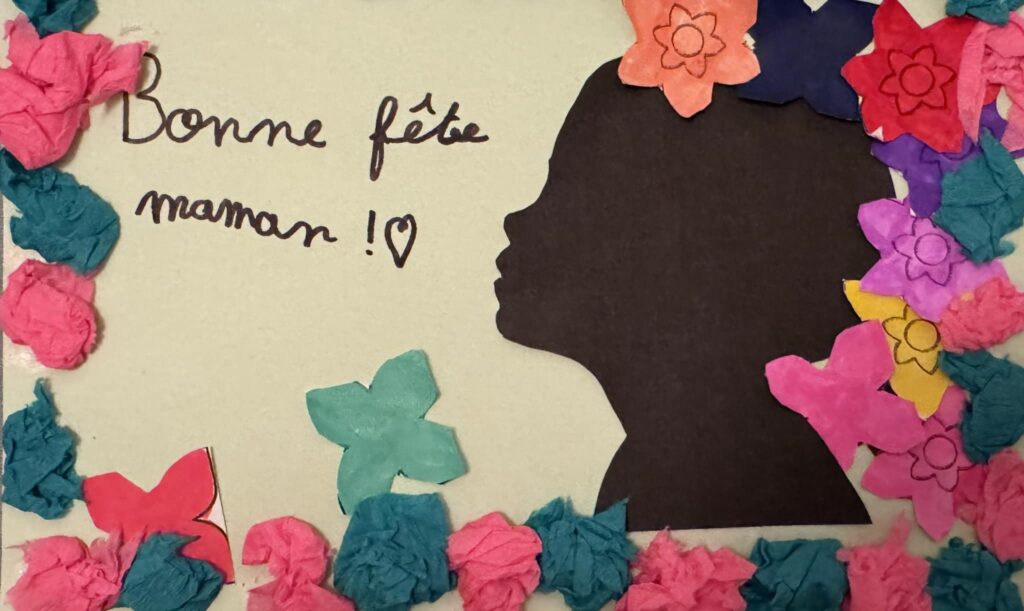 Bonne fête
maman ! ♡